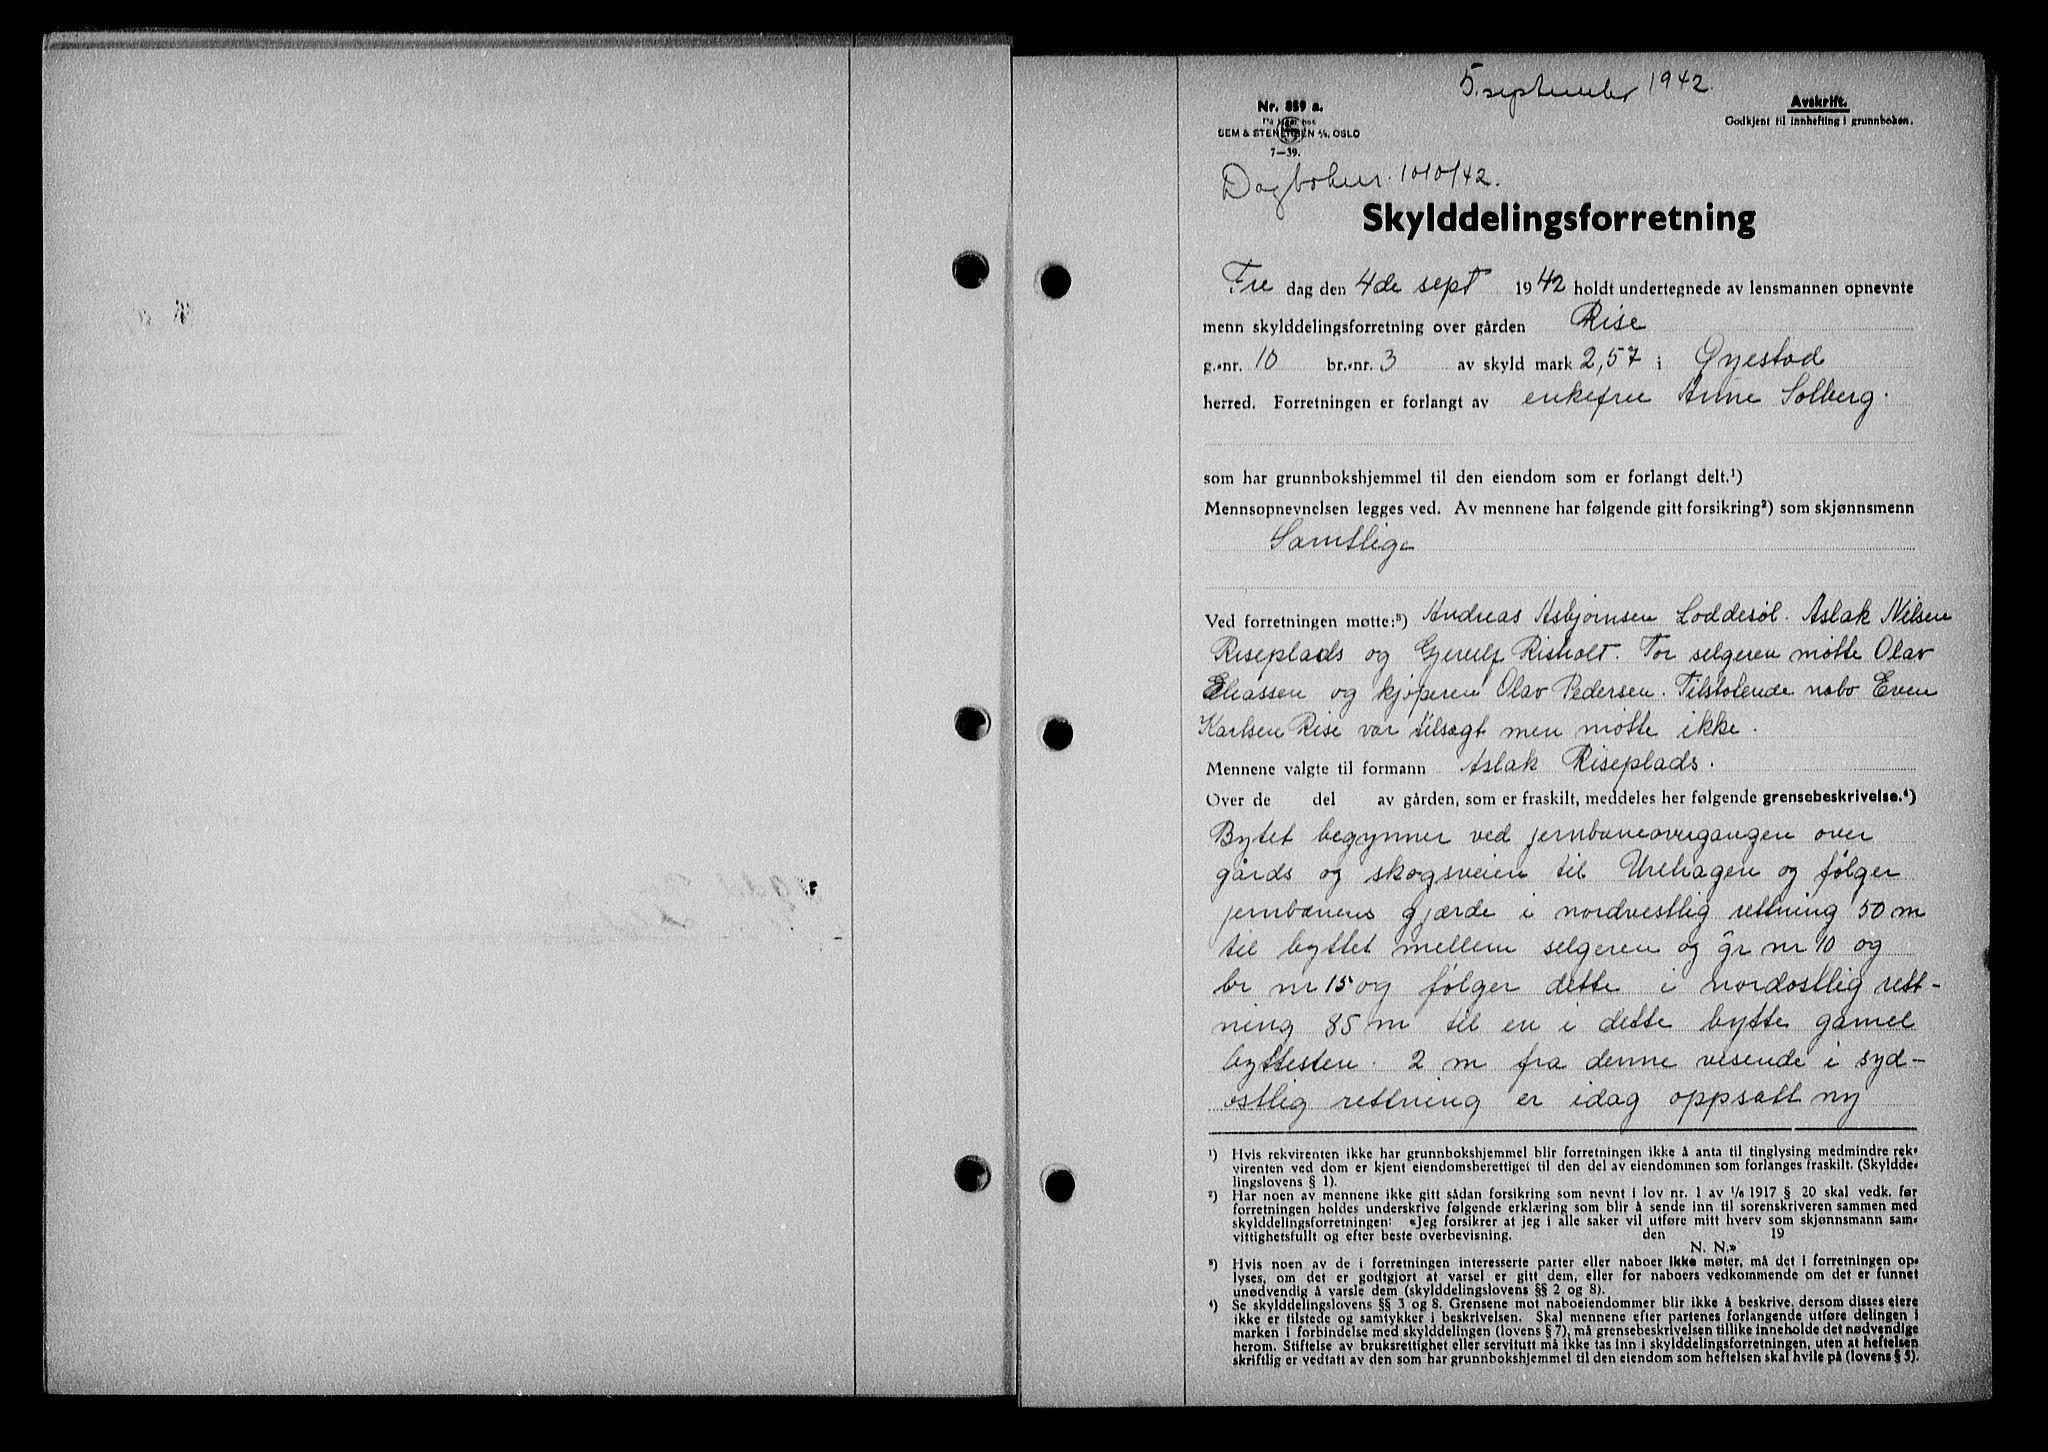 5. september 1942.
Nr. 889 a.
På lager hos
SEM & STENERSEN A/S, OSLO
7—39.
Avskrift.
Godkjent til innhefting i grunnboken.
Dagboknr. 1010/42.
Skylddelingsforretning
Fre dag den 4de sept 1942 holdt undertegnede av lensmannen opnevnte
menn skylddelingsforretning over gården Rise
g.-nr. 10 br.-nr. 3 av skyld mark 2,57 i Øyestad
herred. Forretningen er forlangt av enkefru Anne Solberg.
som har grunnbokshjemmel til den eiendom som er forlangt delt.¹)
Mennsopnevnelsen legges ved. Av mennene har følgende gitt forsikring²) som skjønnsmenn
Samtlige
Ved forretningen møtte:³) Andreas Asbjørnsen Loddesøl. Aslak Nilsen
Riseplads og Gjerulf Risholt. For selgeren møtte Olav
Eliassen og kjøperen Olav Pedersen. Tilstøtende nabo Even
Karlsen Rise var tilsagt men møtte ikke.
Mennene valgte til formann Aslak Riseplads.
Over de del av gården, som er fraskilt, meddeles her følgende grensebeskrivelse.⁴)
Bytet begynner ved jernbaneovergangen over
gårds og skogsveien til Urehagen og følger
jernbanens gjærde i nordvestlig rettning 50 m
til byttet mellem selgeren og gr nr 10 og
br nr 15 og følger dette i nordostlig rett-
ning 85 m til en i dette bytte gamel
byttesten. 2 m fra denne visende i syd-
ostlig rettning er idag oppsatt ny
¹) Hvis rekvirenten ikke har grunnbokshjemmel blir forretningen ikke å anta til tinglysing medmindre rek-
virenten ved dom er kjent eiendomsberettiget til den del av eiendommen som forlanges fraskilt. (Skyldde-
lingslovens § 1).
²) Har noen av mennene ikke gitt sådan forsikring som nevnt i lov nr. 1 av 1/6 1917 § 20 skal vedk. før
forretningen holdes underskrive følgende erklæring som blir å sende inn til sorenskriveren sammen med
skylddelingsforretningen: «Jeg forsikrer at jeg i alle saker vil utføre mitt hverv som skjønnsmann sam-
vittighetsfullt og efter beste overbevisning. den 19
N. N.»
³) Hvis noen av de i forretningen interesserte parter eller naboer ikke møter, må det i forretningen op-
lyses, om det er godtgjort at varsel er gitt dem, eller for naboers vedkommende om det er funnet
unødvendig å varsle dem (skylddelingslovens §§ 2 og 8).
⁴) Se skylddelingslovens §§ 3 og 8. Grensene mot naboeiendommer blir ikke å beskrive, dersom disses eiere
ikke er tilstede og samtykker i beskrivelsen. Skal mennene efter partenes forlangende utføre delingen i
marken i forbindelse med skylddelingen (lovens § 7), må grensebeskrivelsen tillike inneholde det nødvendige
herom. Stiftelse av bruksrettighet eller servitutt må ikke tas inn i skylddelingsforretningen, uten at heftelsen
skriftlig er vedtatt av den som har grunnbokshjemmel til den eiendom som heftelsen skal hvile på (lovens § 5).